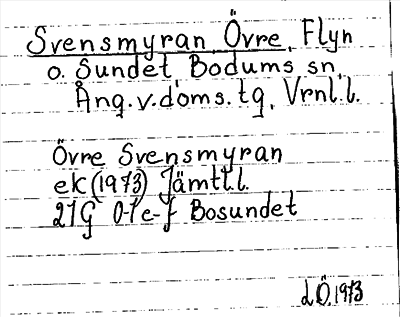 Svensmyran, Övre, Flyn
o. Sundet, Bodums sn,
Ång.v.doms.tg, Vrnl.l.
Övre Svensmyran
ek (1973) Jämtl.l.
21G 0-1e-f Bosundet
LÖ.1973